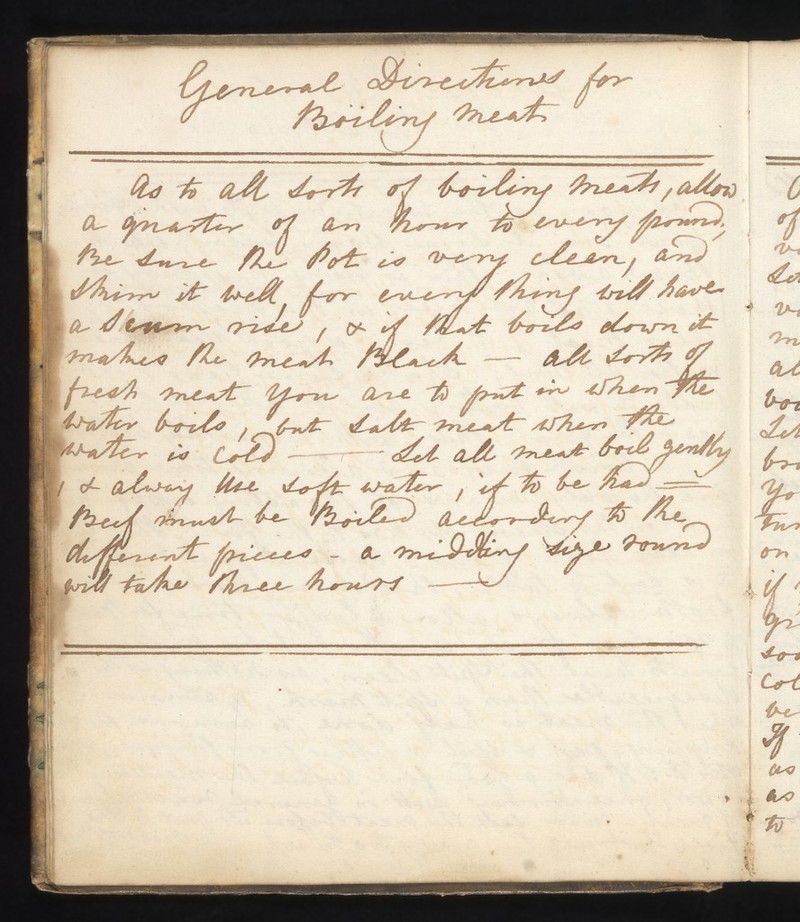 General Directions for
Boiling meat
As to all sorts of boiling meats, allow
a quarter of an hour to every pound,
Be sure the Pot is very clean, and
skim it well, for every thing will have
a Scum rise, & if that boils down it
makes the meat Black — all sorts of
fresh meat you are to put in when the
water boils, but salt meat when the
water is cold — Let all meat boil gently
, & alway use soft water, if to be had =
Beef must be Boiled according to the
different pieces - a middling size round
will take three hours —